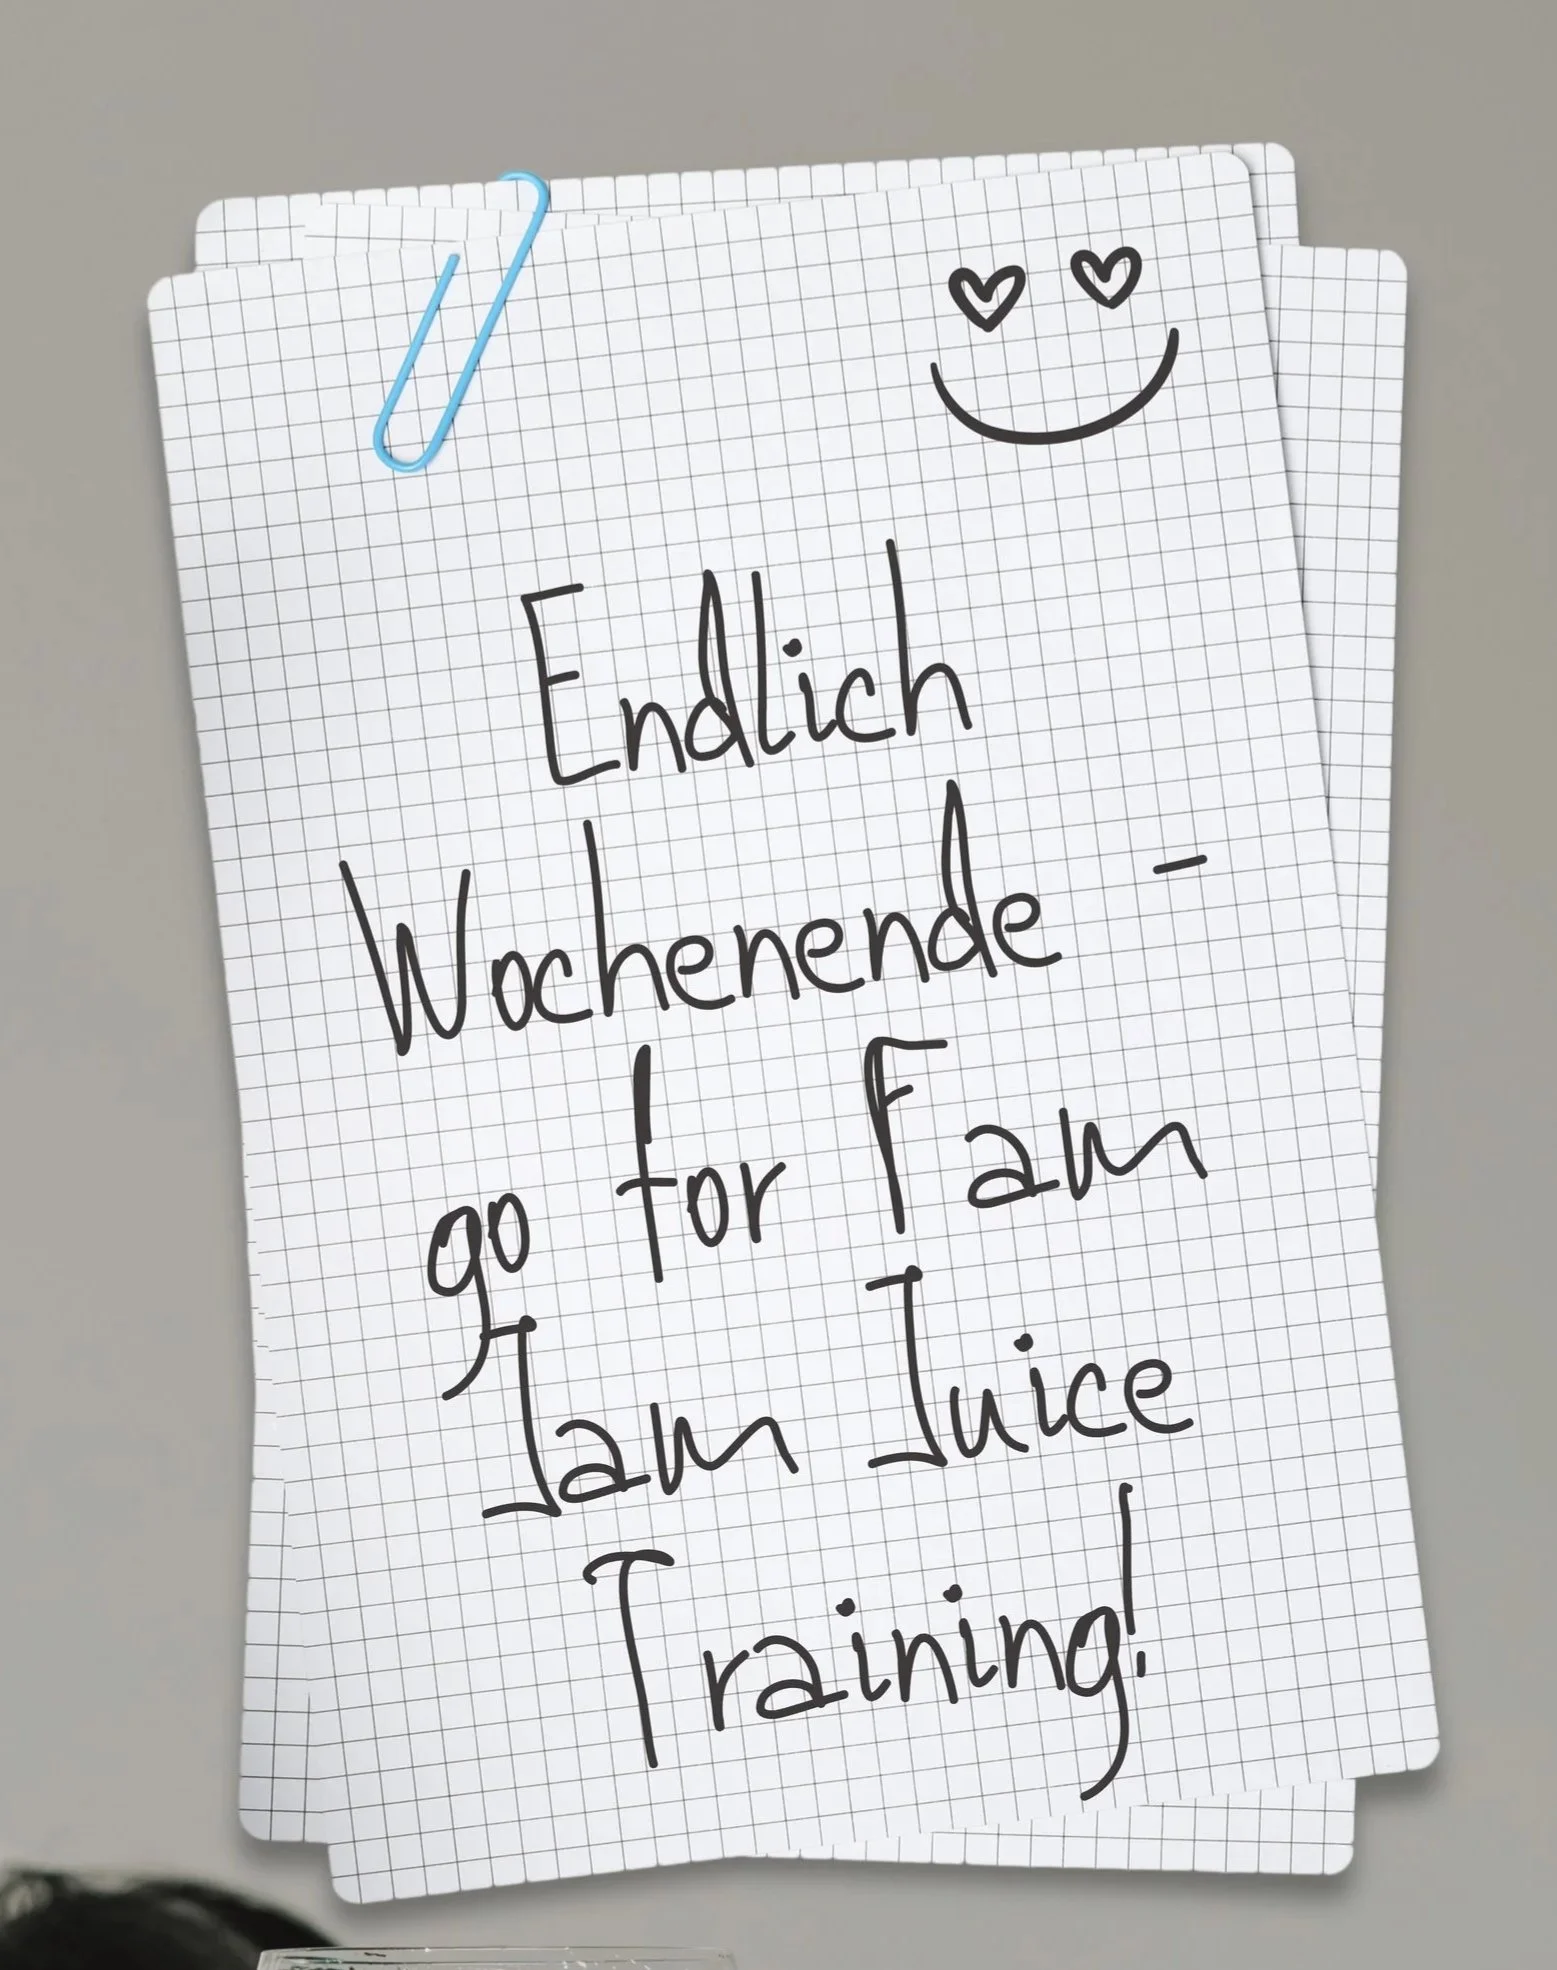 Endlich
Wochenende -
go for Fam
Jam Juice
Training!